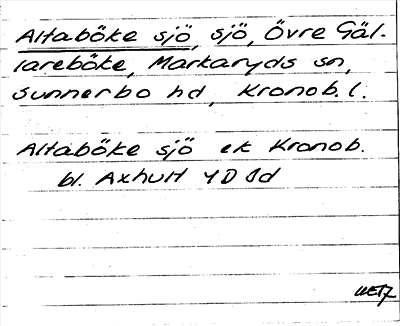 Altaböke sjö, sjö, Övre Gäl-
lareböke, Markaryds sn,
Sunnerbo hd, Kronob. l.
Altaböke sjö ek Kronob.
bl. Axhult 4D Sd